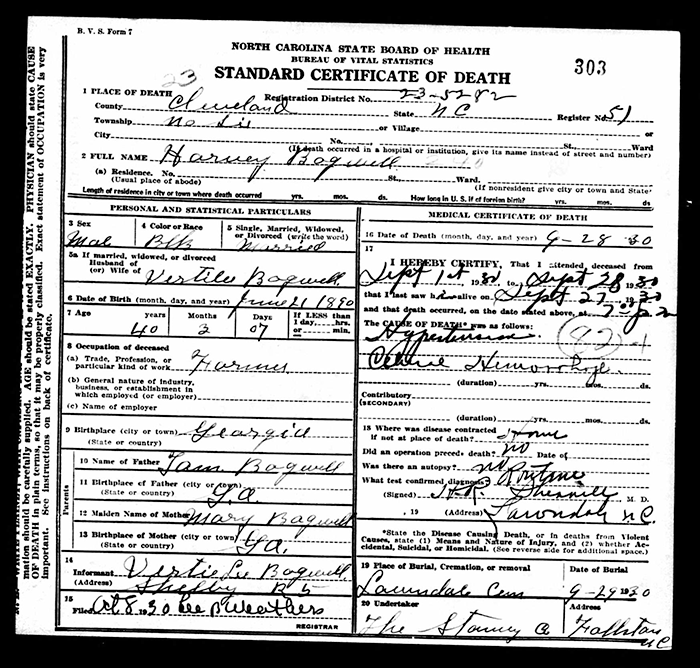 B. V. S. Form 7
NORTH CAROLINA STATE BOARD OF HEALTH
BUREAU OF VITAL STATISTICS
STANDARD CERTIFICATE OF DEATH
303
23
1 PLACE OF DEATH
Registration District No. 23-5282
County Cleveland State NC Register No. 51
Township No Six or Village or
City No. St. Ward
(If death occurred in a hospital or institution, give its name instead of street and number)
2 FULL NAME Harvey Bagwell
(a) Residence. No. St. Ward.
(Usual place of abode) (If nonresident give city or town and State)
Length of residence in city or town where death occurred yrs. mos. ds. How long in U. S. if of foreign birth? yrs. mos. ds.
PERSONAL AND STATISTICAL PARTICULARS
3 Sex 4 Color or Race 5 Single, Married, Widowed,
or Divorced (write the word)
Male Blk Married
5a If married, widowed, or divorced
Husband of
(or) Wife of Bagwell
6 Date of Birth (month, day, and year) June 21 1890
7 Age years Months Days If LESS than
1 day, hrs.
or min.
40 3 07
8 Occupation of deceased
(a) Trade, Profession, or
particular kind of work Farmer
(b) General nature of industry,
business, or establishment in
which employed (or employer)
(c) Name of employer
9 Birthplace (city or town) Georgia
(State or country)
Parents
10 Name of Father Sam Bagwell
11 Birthplace of Father (city or town)
(State or country) Ga
12 Maiden Name of Mother Mary Bagwell
13 Birthplace of Mother (city or town)
(State or country) Ga.
14
Informant Vertie Lee Bagwell
(Address) Shelby R5
15
Filed Oct 8, 1930 Lee B Weathers
REGISTRAR
MEDICAL CERTIFICATE OF DEATH
16 Date of Death (month, day, and year) 9-28 30
17
I HEREBY CERTIFY, That I attended deceased from
Sept 1st 30 to Sept 28 1930
that I last saw h alive on Sept 27 1930
and that death occurred, on the date stated above, at
The CAUSE OF DEATH* was as follows:
Hypertension
Hemorrhage
(duration) yrs. mos. ds.
Contributory
(SECONDARY)
(duration) yrs. mos. ds.
18 Where was disease contracted
if not at place of death? Home
Did an operation precede death? no Date of
Was there an autopsy? no
What test confirmed diagnosis? Routine
(Signed) M. D.
, 19 (Address) Lawndale N.C.
*State the Disease Causing Death, or in deaths from Violent
Causes, state (1) Means and Nature of Injury, and (2) whether Ac-
cidental, Suicidal, or Homicidal. (See reverse side for additional space.)
19 Place of Burial, Cremation, or removal Date of Burial
Lawndale Cem 9-29 1930
20 Undertaker Address
The Stamey Co Fallston
NC
mation should be carefully supplied. AGE should be stated EXACTLY. PHYSICIAN should state CAUSE
OF DEATH in plain terms, so that it may be properly classified. Exact statement of OCCUPATION is very
important. See instructions on back of certificate.